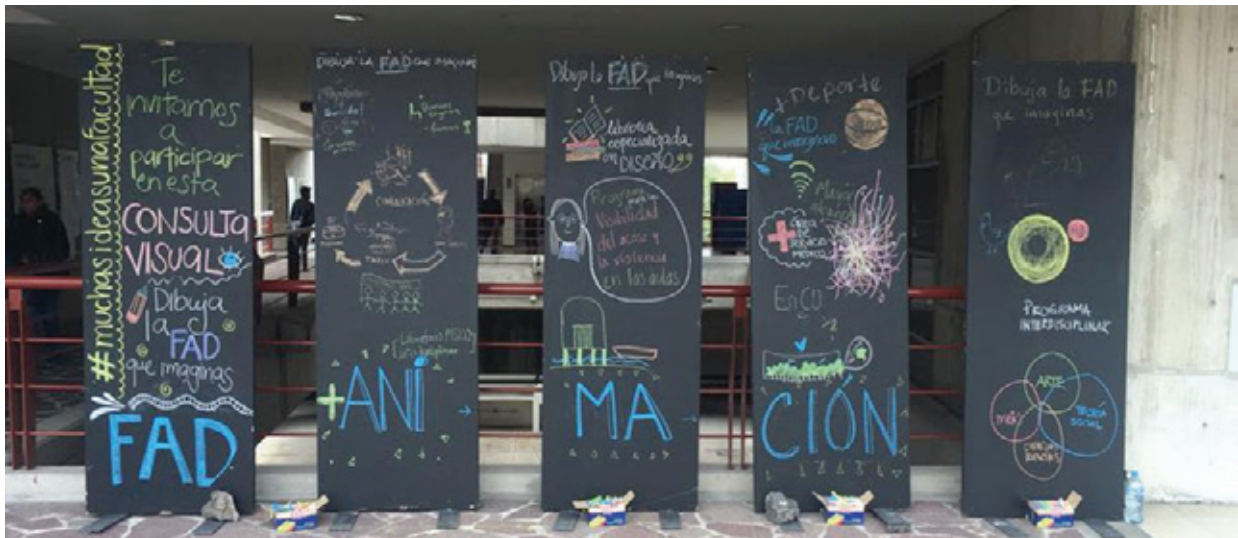 #muchasideasunafacultad
Te
invitamos
a
participar
en esta
CONSULTA
VISUAL
Dibuja
la
FAD
que imaginas
FAD
DIBUJA LA FAD QUE IMAGINAS
COMUNICACIÓN
+ANÍ
Dibuja la FAD que imaginas
especializada
en DISEÑO
Programa
Visibilidad
del acoso y
la violencia
en las aulas
MA
+Deporte
la FAD
que imagino
ÁREA
DE
SERVICIO
MÉDICO
En CU
CIÓN
Dibuja la FAD
que imaginas
PROGRAMA
INTERDISCIPLINAR
ARTE
SOCIAL